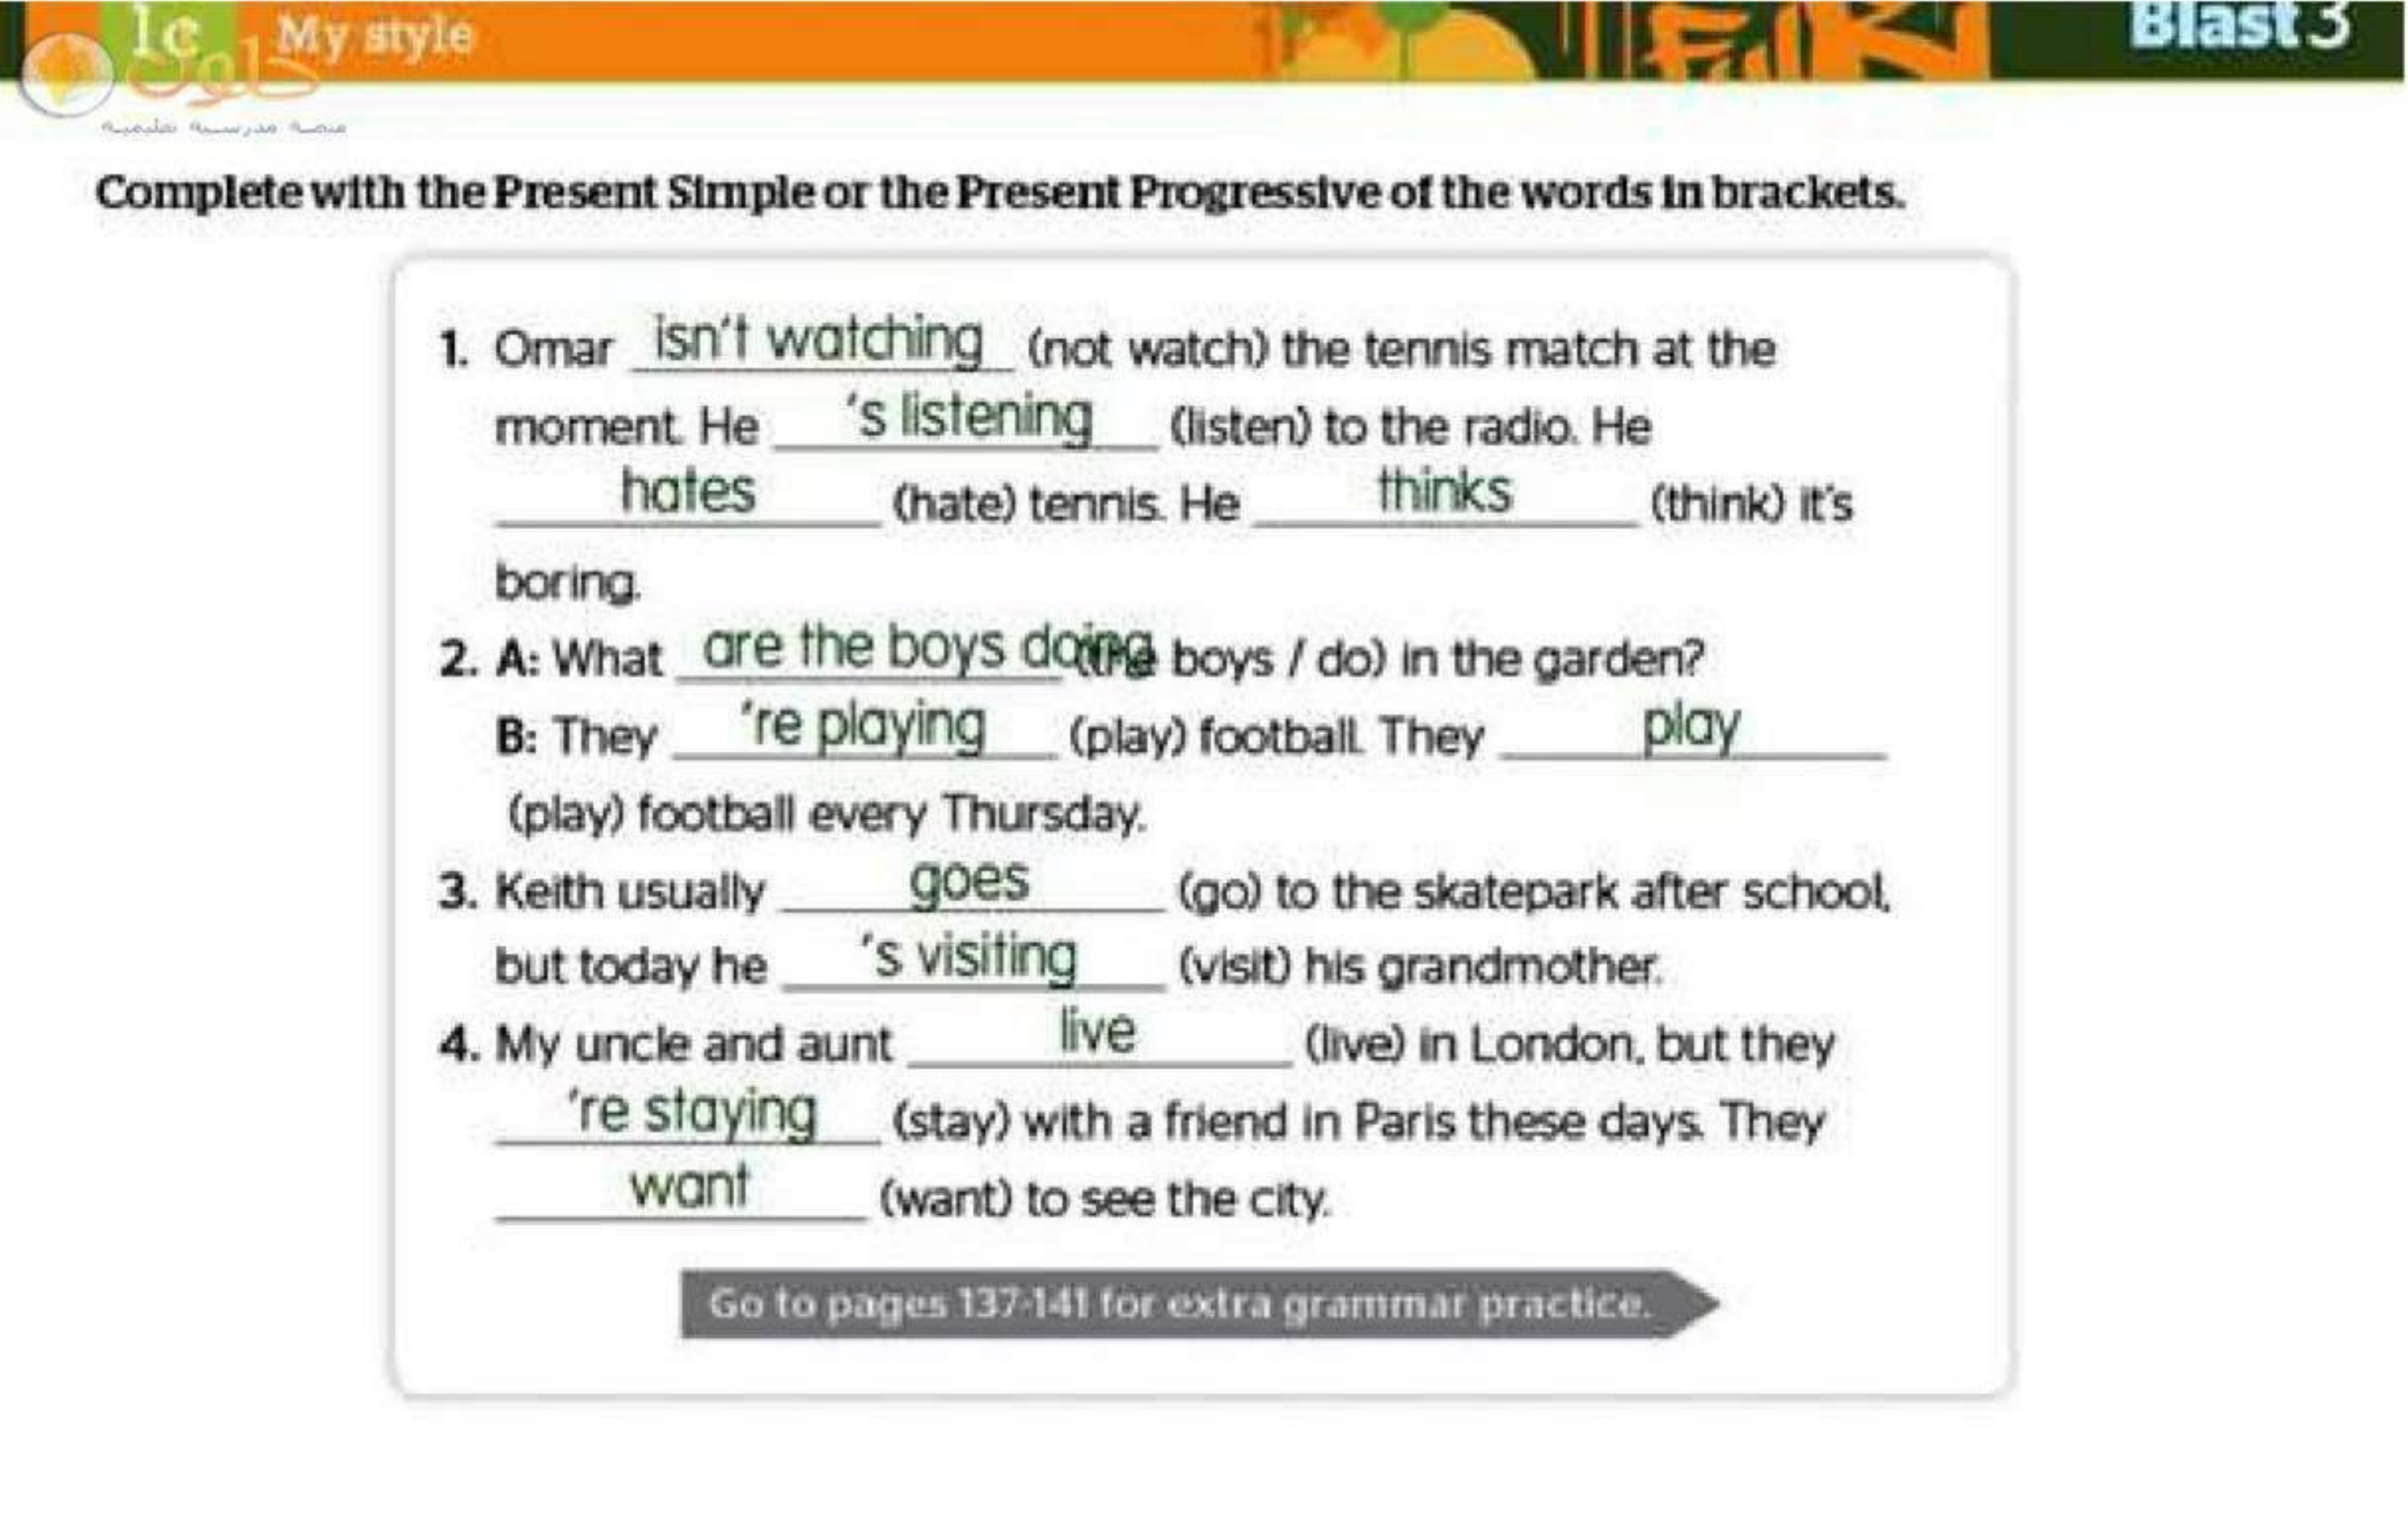 1c My style
Blast 3
حلول
منصة مدرسية تعليمية
Complete with the Present Simple or the Present Progressive of the words in brackets.
1. Omar isn't watching (not watch) the tennis match at the
moment. He 's listening (listen) to the radio. He
hates (hate) tennis. He thinks (think) it's
boring.
2. A: What are the boys doing (the boys / do) in the garden?
B: They 're playing (play) football. They play
(play) football every Thursday.
3. Keith usually goes (go) to the skatepark after school,
but today he 's visiting (visit) his grandmother.
4. My uncle and aunt live (live) in London, but they
're staying (stay) with a friend in Paris these days. They
want (want) to see the city.
Go to pages 137-141 for extra grammar practice.